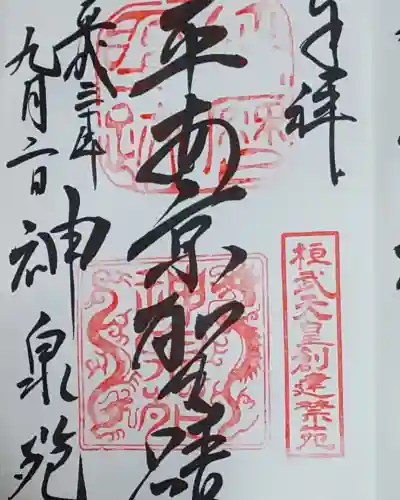 奉拝
桓武天皇創建禁苑
平安京聖蹟
神泉苑
平成三十年
九月二日
神泉苑